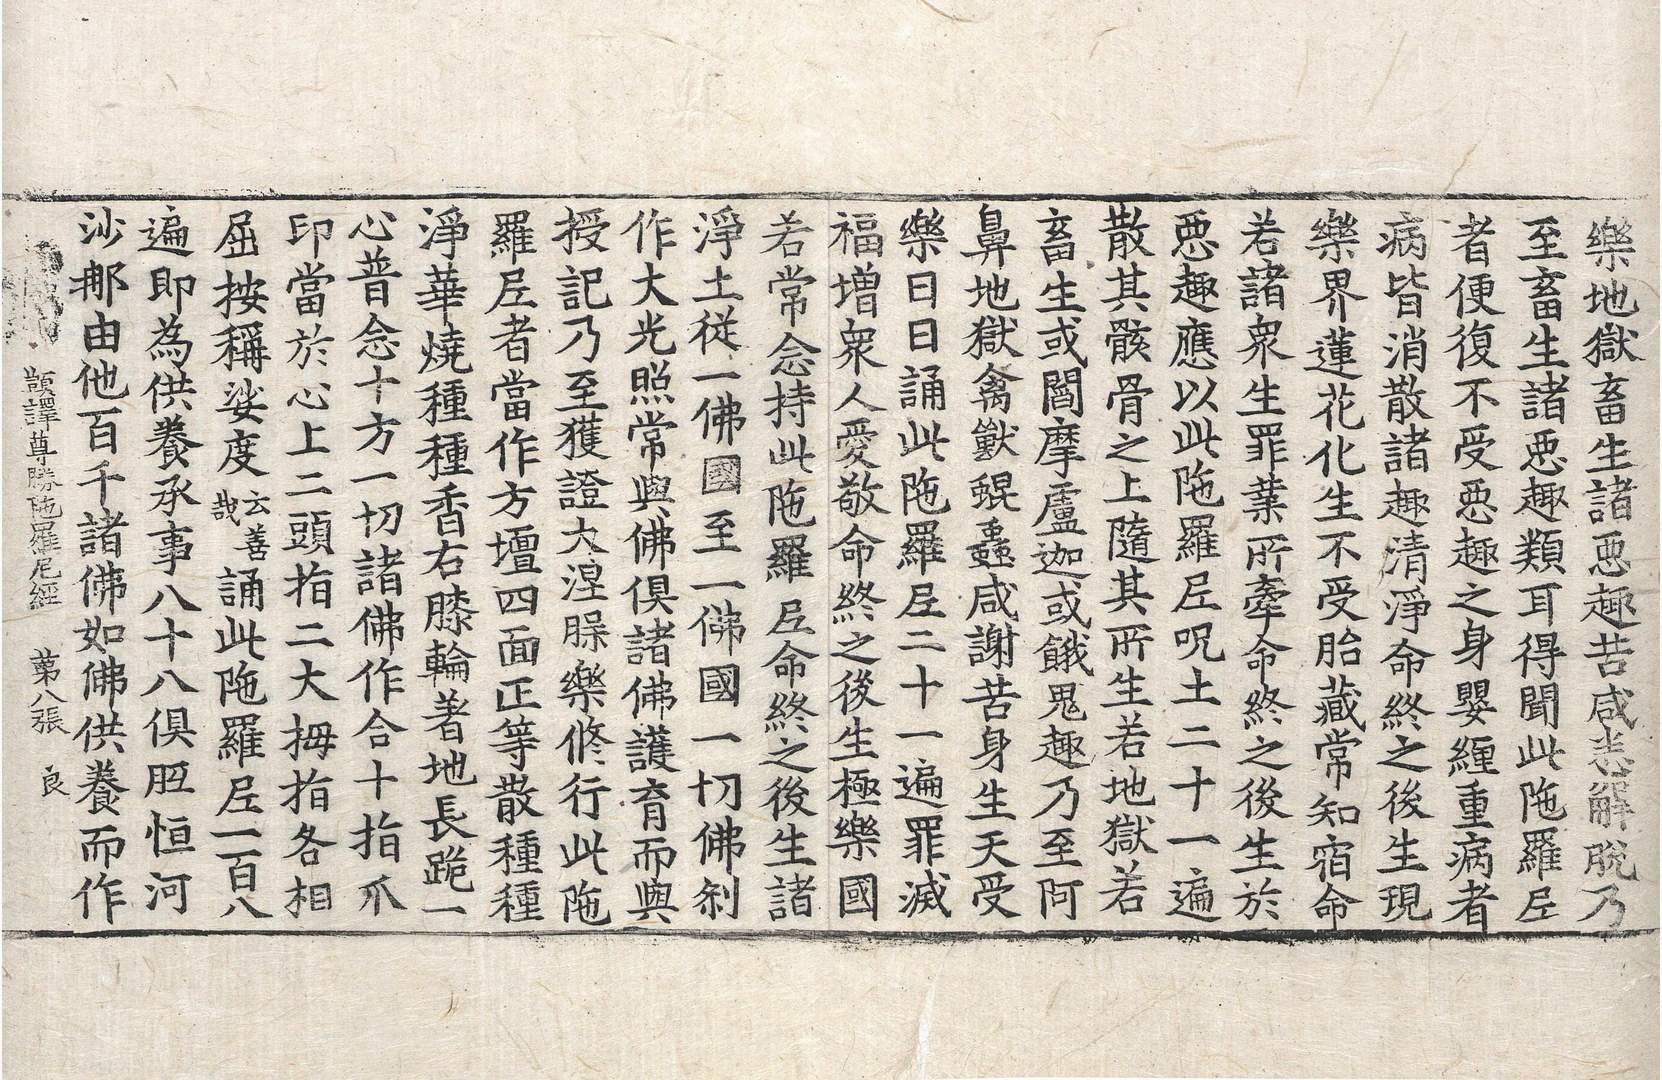 樂地獄畜生諸惡趣苦咸悉解脫乃
至畜生諸惡趣類耳得聞此陁羅𡰱
者便復不受惡趣之身嬰纏重病者
病皆消散諸趣清淨命終之後生現
樂界蓮花化生不受胎藏常知宿命
若諸衆生罪業所牽命終之後生於
惡趣應以此陁羅𡰱呪土二十一遍
散其骸骨之上隨其所生若地獄若
畜生或閻摩盧迦或餓鬼趣乃至阿
鼻地獄禽獸蜫蟲咸謝苦身生天受
樂日日誦此陁羅𡰱二十一遍罪滅
福增衆人愛敬命終之後生極樂國
若常念持此陁羅𡰱命終之後生諸
淨土從一佛國至一佛國一切佛刹
作大光照常與佛俱諸佛護育而與
授記乃至獲證大涅槃樂修行此陁
羅𡰱者當作方壇四面正等散種種
淨華燒種種香右膝輪著地長跪一
心普念十方一切諸佛作合十指爪
印當於心上二頭指二大拇指各相
屈按稱娑度云善哉誦此陁羅𡰱一百八
遍即為供養承事八十八俱胝恒河
沙那由他百千諸佛如佛供養而作
顗譯尊勝陁羅尼經 第八張 良